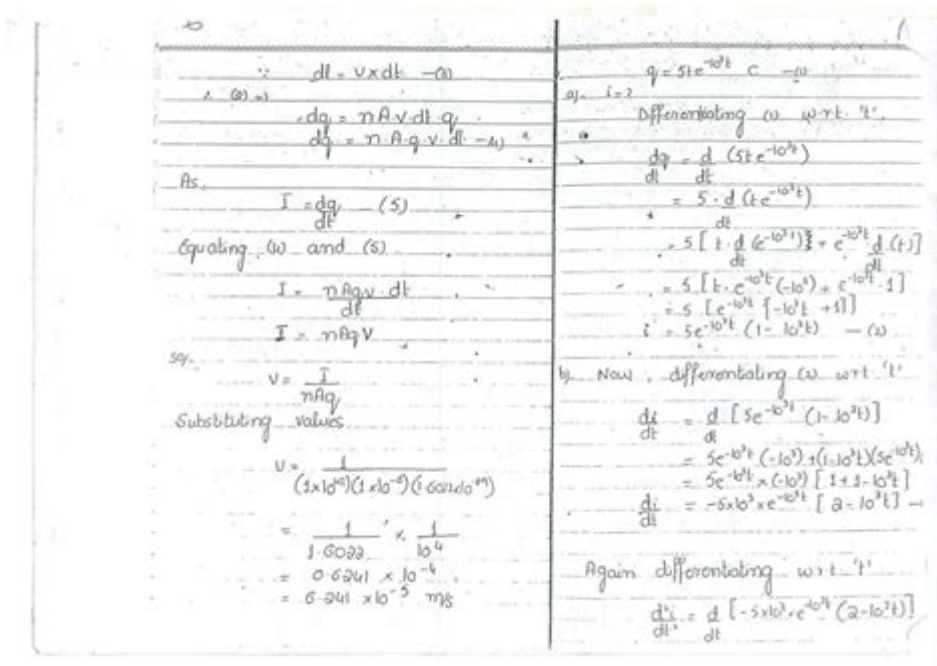 ∵ dl = v×dt —(3)
∴ (2) ⇒
dq = nAv·dt·q
dq = n·A·q·v·dt —(4)
As,
I = dq/dt (5)
Equating (4) and (5)
I = nAqv·dt/dt
I = nAqV
so,
V = I/nAq
Substituting values
= 1/1.6022 × 1/10⁴
= 0.6241 × 10⁻⁴
= 6.241 ×10⁻⁵ m/s
q = 5te^-10³t C —(1)
a). i = ?
Differentiating (1) w.r.t. 't'.
dq/dt = d/dt (5te^-10³t)
= 5 · d/dt (te^-10³t)
= 5 [ t · d/dt (e^-10³t)} + e^-10³t d/dt (t)]
= 5 [t · e^-10³t (-10³) + e^-10³t · 1]
= 5 [e^-10³t {-10³t +1}]
i = 5e^-10³t (1 - 10³t) —(2)
b). Now, differentiating (2) w.r.t 't'
di/dt = d/dt [5e^-10³t (1-10³t)]
= 5e^-10³t (-10³) + (1-10³t)(5e^-10³t)
= 5e^-10³t × (-10³) [1 + 1 - 10³t]
di/dt = -5×10³ × e^-10³t [2 - 10³t] —
Again differentiating w.r.t 't'
d²i/dt² = d/dt [-5×10³ × e^-10³t (2-10³t)]